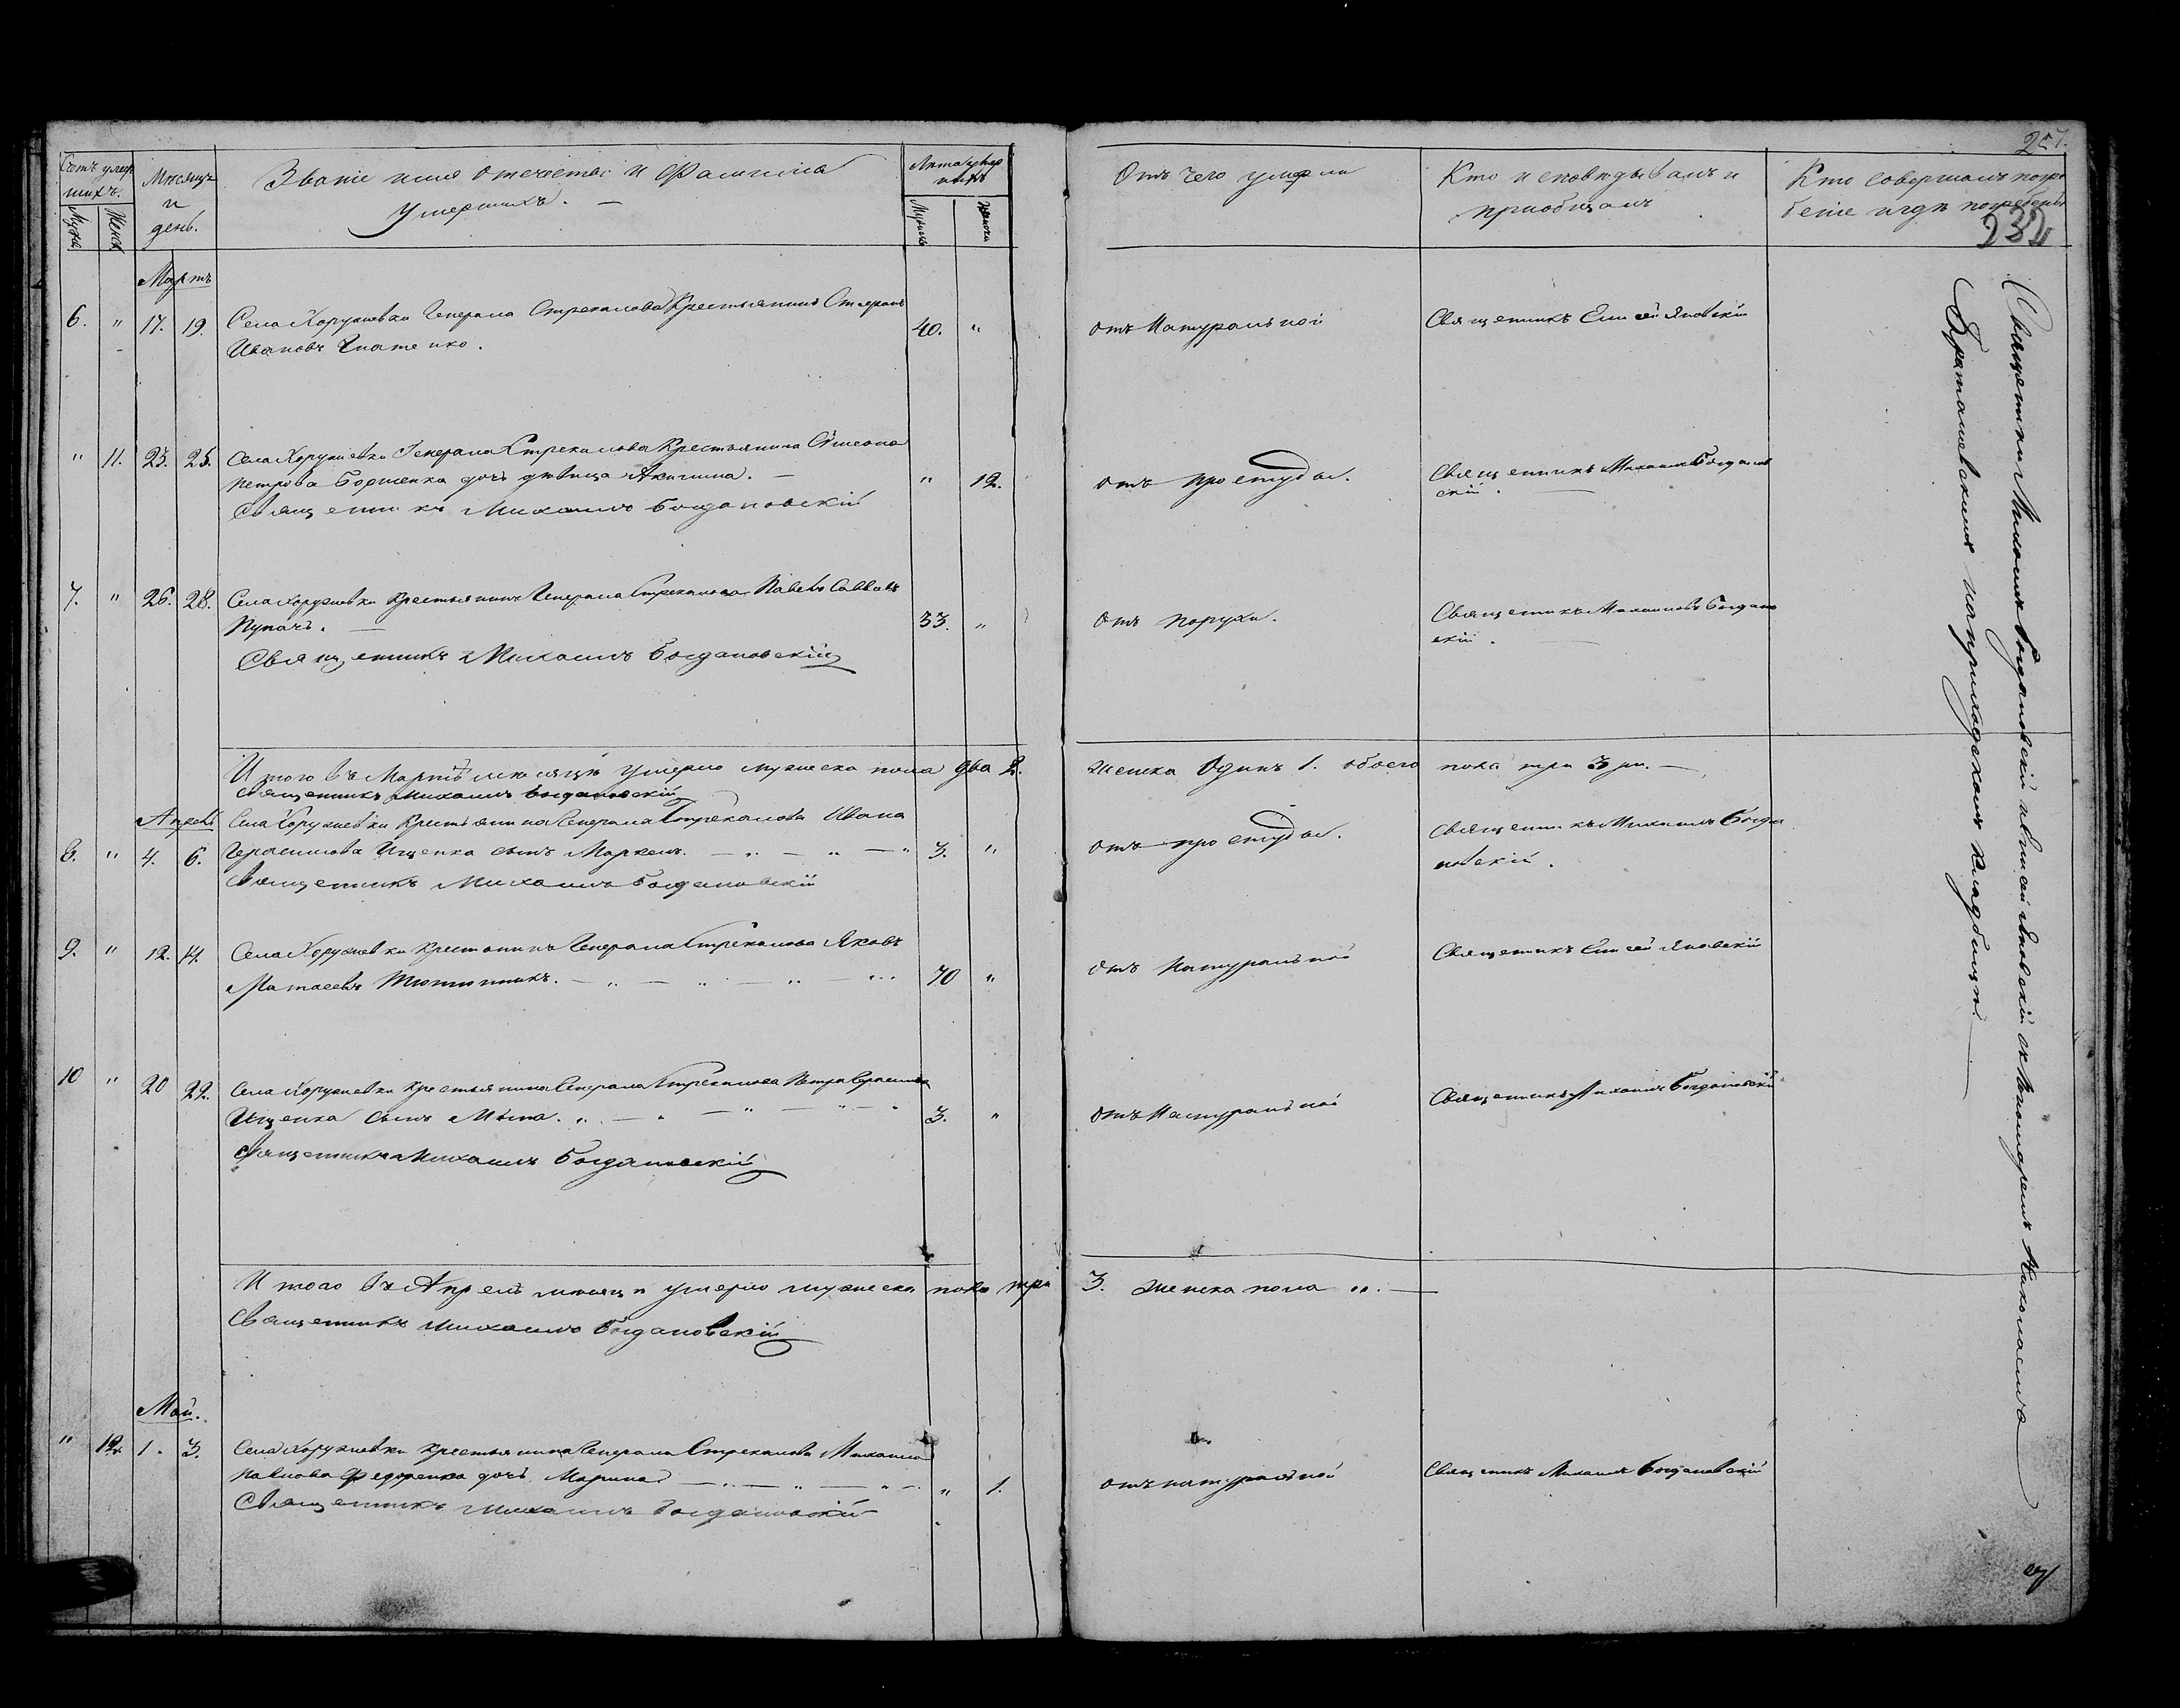 257.
232
Счетъ умер
шихъ.
Мужс
Женс
Мѣсяцъ
и
день.
Званіе имя отечество и Фамилія
Умершихъ. —
Лѣта умер
шихъ
Мужска
Женска
Отъ чего умерли
Кто исповѣдывалъ и
пріобщалъ
Кто совершалъ погре
беніе и гдѣ погребены
Мартъ
6. " 17. 19. Села Хоружевки Генерала Стрекалова Крестьянинъ
Ивановъ Гнатенко. 40. "
отъ Натуральной
Священникъ Елисей Яновскій
" 11. 23. 25. Села Хоружевки Генерала Стрекалова Крестьянина Симеона
Петрова Борженка дочь дѣвица Акилина. — " 12.
Священникъ Михаилъ Богдановскій
отъ простуды.
Священникъ Михаилъ Богданов
скій.
7. " 26. 28. Села Хоружевки Крестьянинъ Генерала Стрекалова Павелъ Саввинъ
33. "
Священникъ Михаилъ Богдановскій
отъ порухи.
Священникъ Михаилъ Богданов
скій.
Итого въ Мартѣ мѣсяцѣ Умерло мужеска пола два 2. женска Одинъ 1. обоего пола три 3 ри. —
Священникъ Михаилъ Богдановскій
Апрель
Села Хоружевки Крестьянина Генерала Стрекалова Ивана
8. " 4. 6. Герасимова Ищенка сынъ Маркелъ. 3. "
Священникъ Михаилъ Богдановскій
отъ простуды.
Священникъ Михаилъ Богда
новскій.
9. " 12. 14. Села Хоружевки Крестьянинъ Генерала Стрекалова Яковъ
Матвеевъ Тютюнникъ. 70 "
отъ Натуральной
Священникъ Елисей Яновскій
10 " 20 22. Села Хоружевки Крестьянина Генерала Стрекалова Петра Герасимова
Ищенка сынъ 3. "
Священникъ Михаилъ Богдановскій
отъ Натуральной
Священникъ Михаилъ Богдановскій
Итого въ Апрелѣ мѣсяцѣ умерло мужеска пола три 3. женска пола ". —
Священникъ Михаилъ Богдановскій
Май.
" 12. 1. 3. Села Хоружевки крестьянина Генерала Стрекалова Михаила
Павлова Федоренка дочь Марина " 1.
Священникъ Михаилъ Богдановскій
отъ натуральной
Священникъ Михаилъ Богдановскій
Священники Михаилъ Богдановскій и Елисей Яновскій съ Пономаремъ Николаемъ
на приходскомъ кладбищѣ.